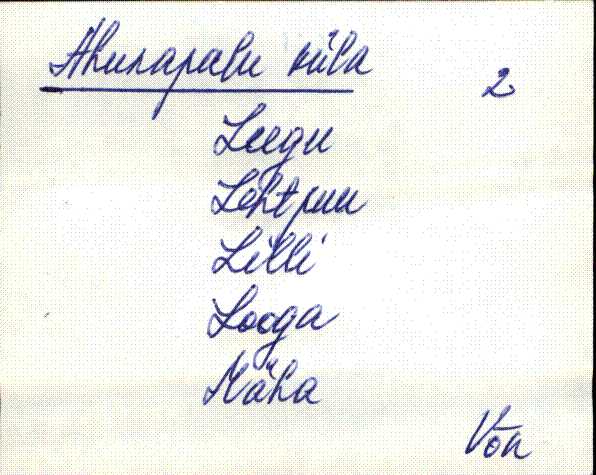 Ahunapalu küla
2
Leegu
Lehtpuu
Lilli
Looga
Mäha
Võn